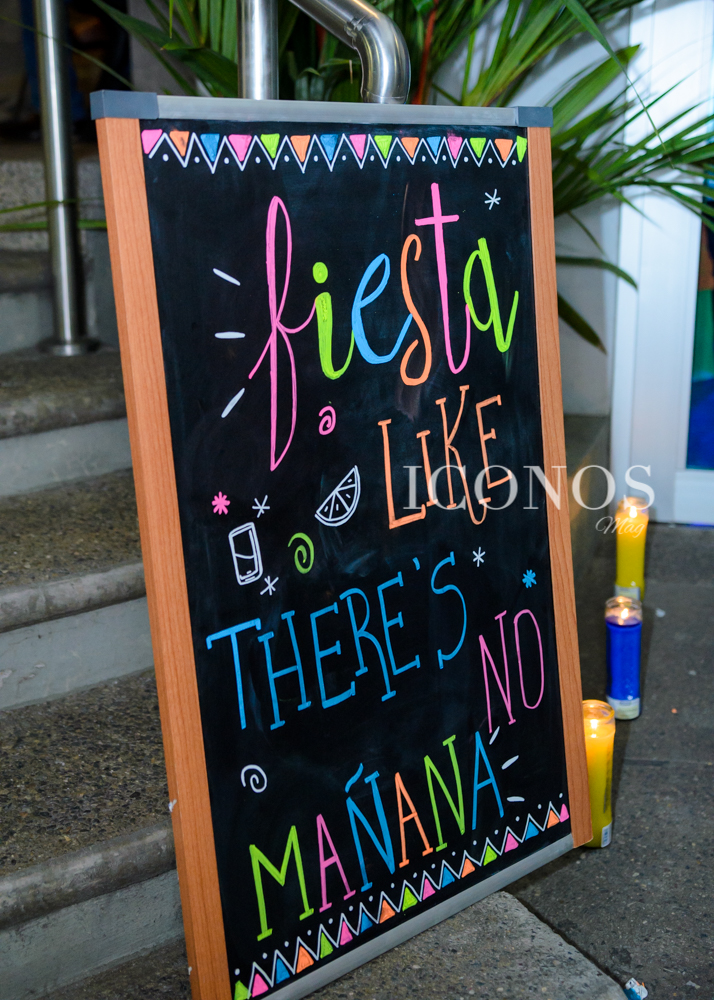 fiesta
LIKE
THERE'S
NO
MAÑANA
ICONOS
Mag